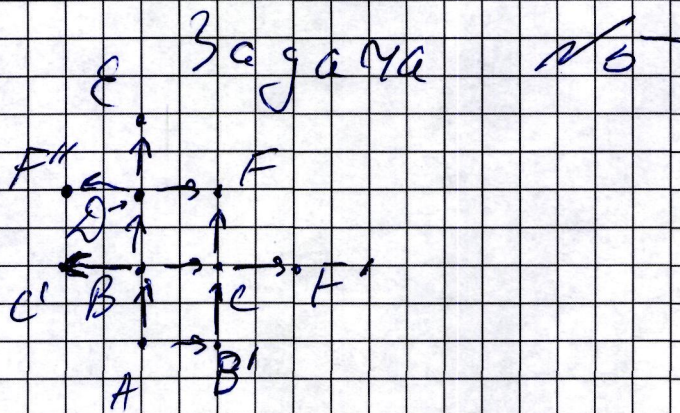 Задача №5
E
F'' F
D
C' B C F'
A B'